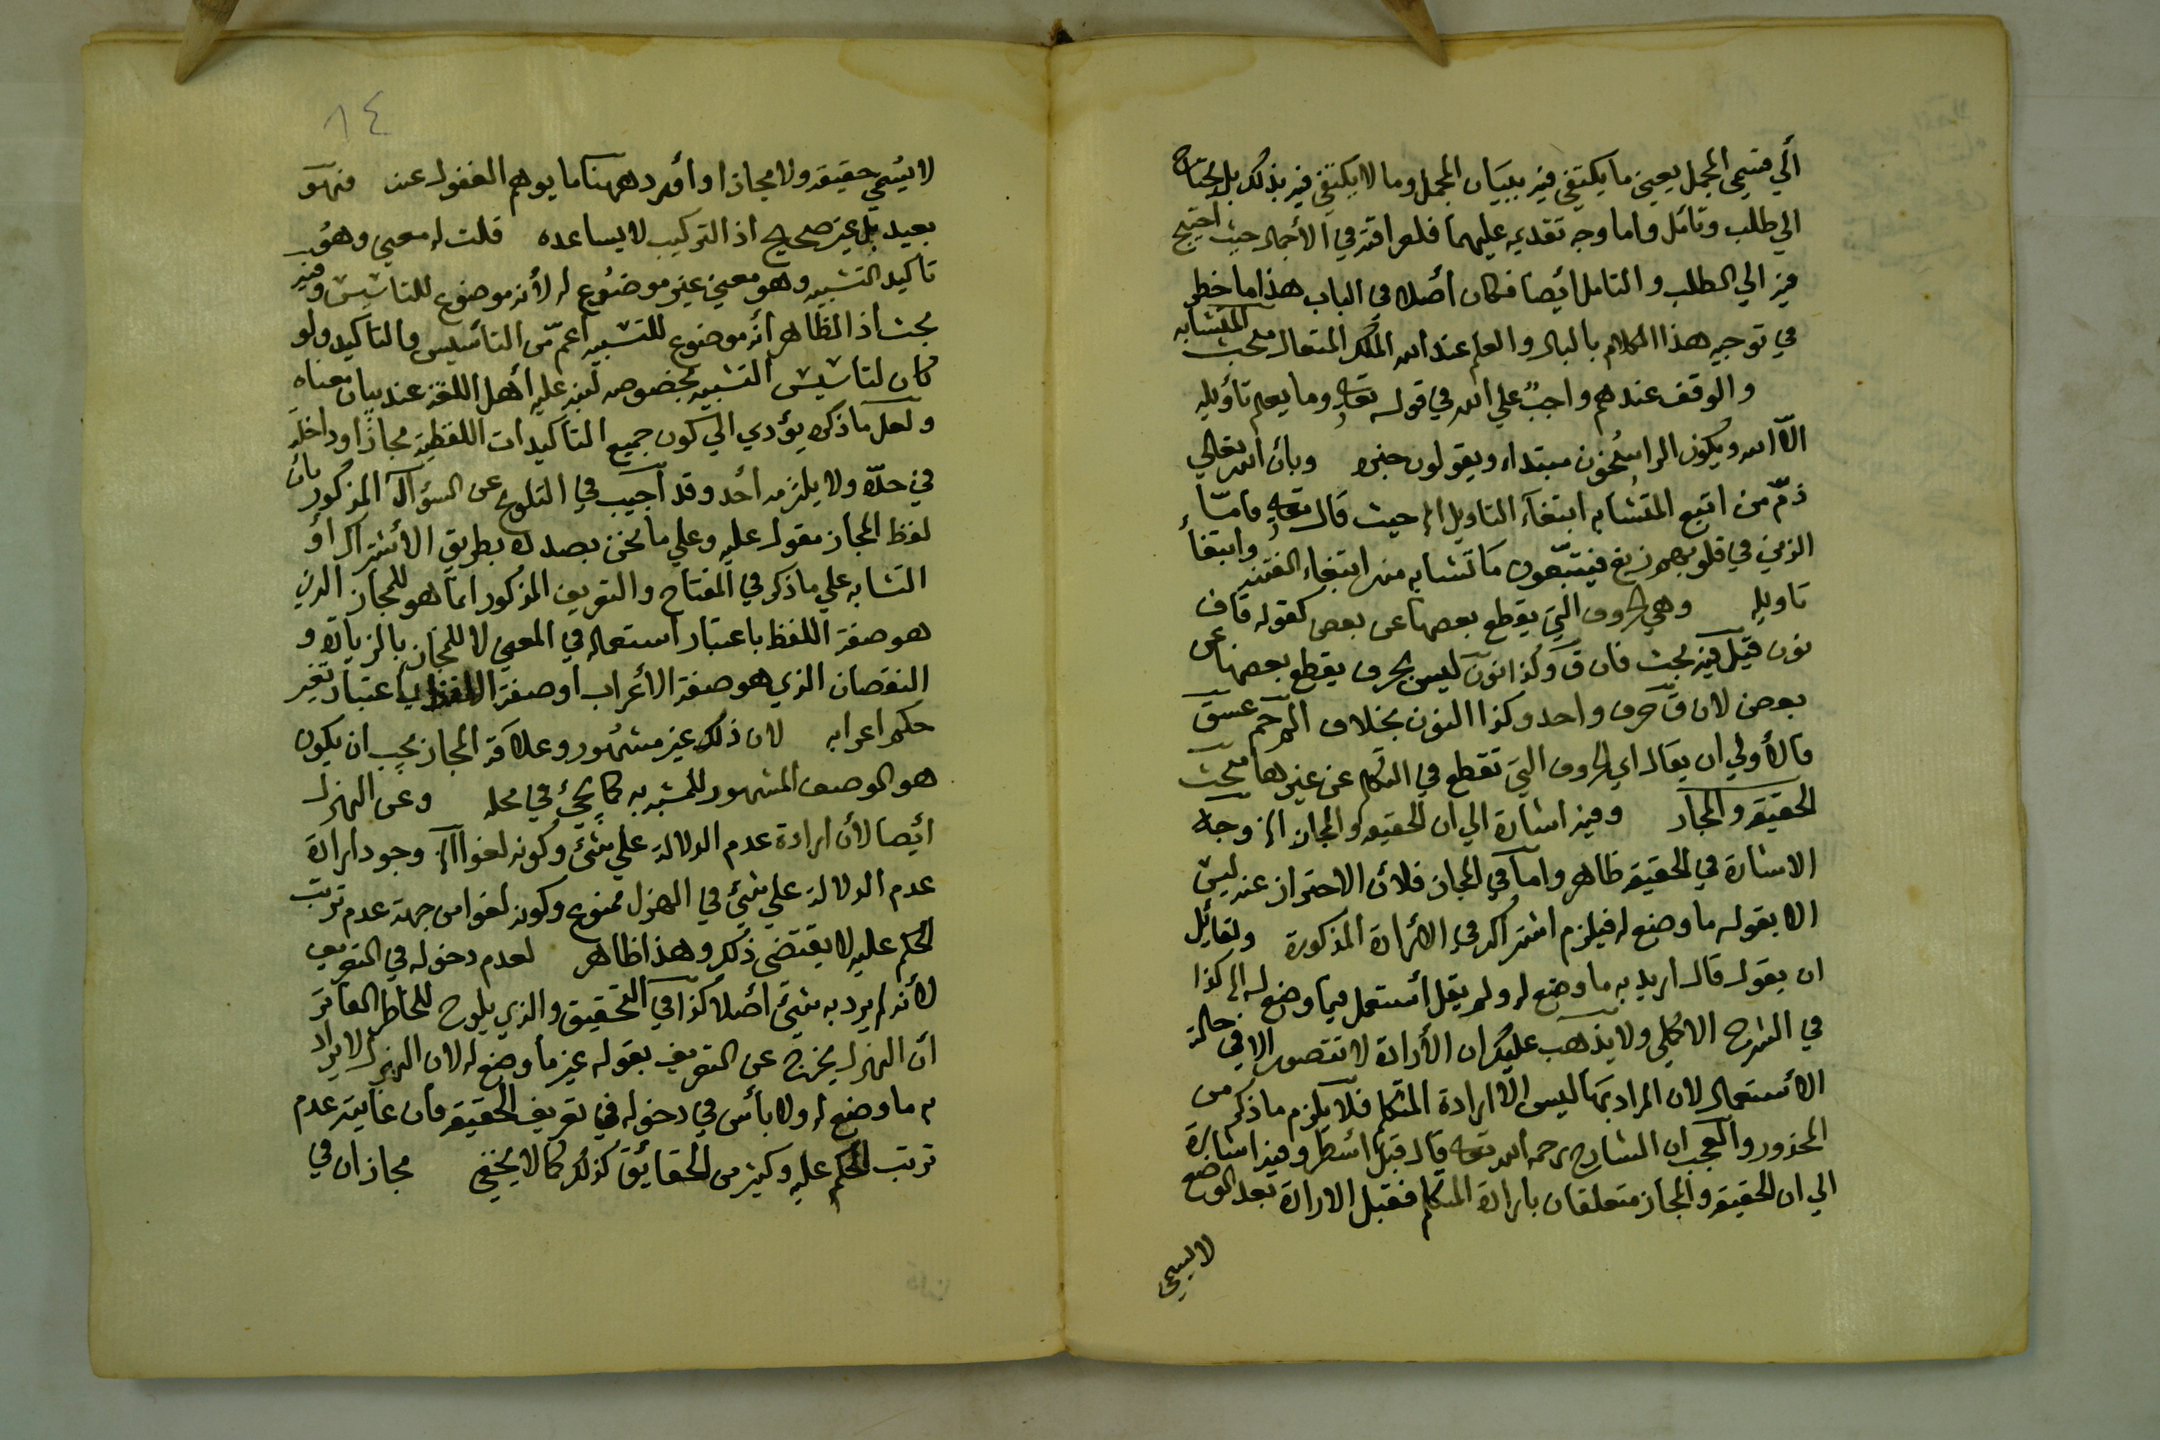 الي قسمي المجمل يعني ما يكتفي فيه ببيان المجمل وما لا يكتفي فيه بذلك بل يحتاج
الي طلب وتامل واما وجه تقديمه عليهما فلعراقته في الأجمال حيث احتيج
فيه الي الطلب والتامل ايضا فكان أصلا في الباب هذا ما خطر
في توجيه هذا الكلام بالبال والعلم عند الله الملك المتعال مبحث المتشابه
والوقف عندهم واجب علي الله في قوله تعالي وما يعلم تأويله
الا الله ويكون الراسخون مبتداء ويقولون خبره وبان الله تعالي
ذم من اتبع المتشابه ابتغآء التاويل الخ حيث قال تعالي فامّا
الذين في قلوبهم زيغ فيتبعون ما تشابه منه ابتغاء الفتنة وابتغأ
تاويله وهي الحروف التي يقطع بعضها عن بعض كقوله قاف
نون قيل فيه بحث فان ق وكذا نون ليس بحرف يقطع بعضها عن
بعض لان ق حرف واحد وكذا النون بخلاف الم حم عسق
فالأولي ان يقال اي الحروف التي تقطع في التكلم عن غيرها مبحث
الحقيقة والمجاز وفيه اشارة الي ان الحقيقة والمجاز الخ وجه
الاشارة في الحقيقة ظاهر واما في المجاز فلأن الاحتراز عنه ليس
الا بقوله ما وضع له فيلزم اشتراكه في الارادة المذكورة ولقائل
ان يقول قال اريد به ما وضع له ولم يقل أستعمل فيما وضع له الي كذا
في الشرح الاكملي ولا يذهب عليك ان الأرادة لا تتصور الا في حالة
الاستعمال لان المراد بها ليس الا ارادة المتكلم فلا يلزم ما ذكر من
المحذور والعجب ان الشارح رحمه الله تعالي قال قبل اسطر وفيه اشارة
الي ان الحقيقة والمجاز متعلقان بارادة المتكلم فقبل الارادة بعد الوضع
لا يسمي
١٤
لا يسمي حقيقة ولا مجازا واورد ههنا ما يوهم الغفول عنه فهو
بعيد بل غير صحيح اذ التركيب لا يساعده قلت له معني وهو
تاكيد التشبيه وهو معني غير موضوع له لأنه موضوع للتاسيس وفيه
بحث اذ الظاهر أنه موضوع للتشبيه اعم من التأسيس والتاكيد ولو
كان لتاسيس التشبيه بخصوصه لنبه عليه أهل اللغة عند بيان معناه
ولعل ما ذكره يؤدي الي كون جميع التاكيدات اللفظية مجازا وداخلة
في حده ولا يلتزمه أحد وقد أجيب في التلويح عن السؤال المذكور بأن
لفظ المجاز مقول عليه وعلي ما نحن بصدده بطريق الأشتراك أو
التشابه علي ما ذكر في المفتاح والتعريف المذكور انما هو للمجاز الذي
هو صفة اللفظ باعتبار استعماله في المعني لا للمجاز بالزيادة و
النقصان الذي هو صفة الأعراب أو صفة اللفظ باعتبار تغير
حكم اعرابه لان ذلك غير مشهور وعلاقة المجاز يجب ان يكون
هو الوصف المشهور للمشبه به كما يجئ في محله وعن الهزل
ايضا لأن ارادة عدم الدلالة علي شئ وكونه لغوا الخ وجود ارادة
عدم الدلالة علي شئ في الهزل ممنوع وكونه لغوا من جهة عدم ترتب
الحكم عليه لا يقتضي ذلك وهذا ظاهر لعدم دخوله في التعريف
لأنه لم يرد به شئ أصلا كذا في التحقيق والذي يلوح للخاطر الفاتر
ان الهزل يخرج عن التعريف بقوله غير ما وضع له لان الهزل لا يراد
به ما وضع له ولا بأس في دخوله في تعريف الحقيقة فان غايته عدم
ترتب الحكم عليه وكثير من الحقائق كذلك كما لا يخفي مجازان في